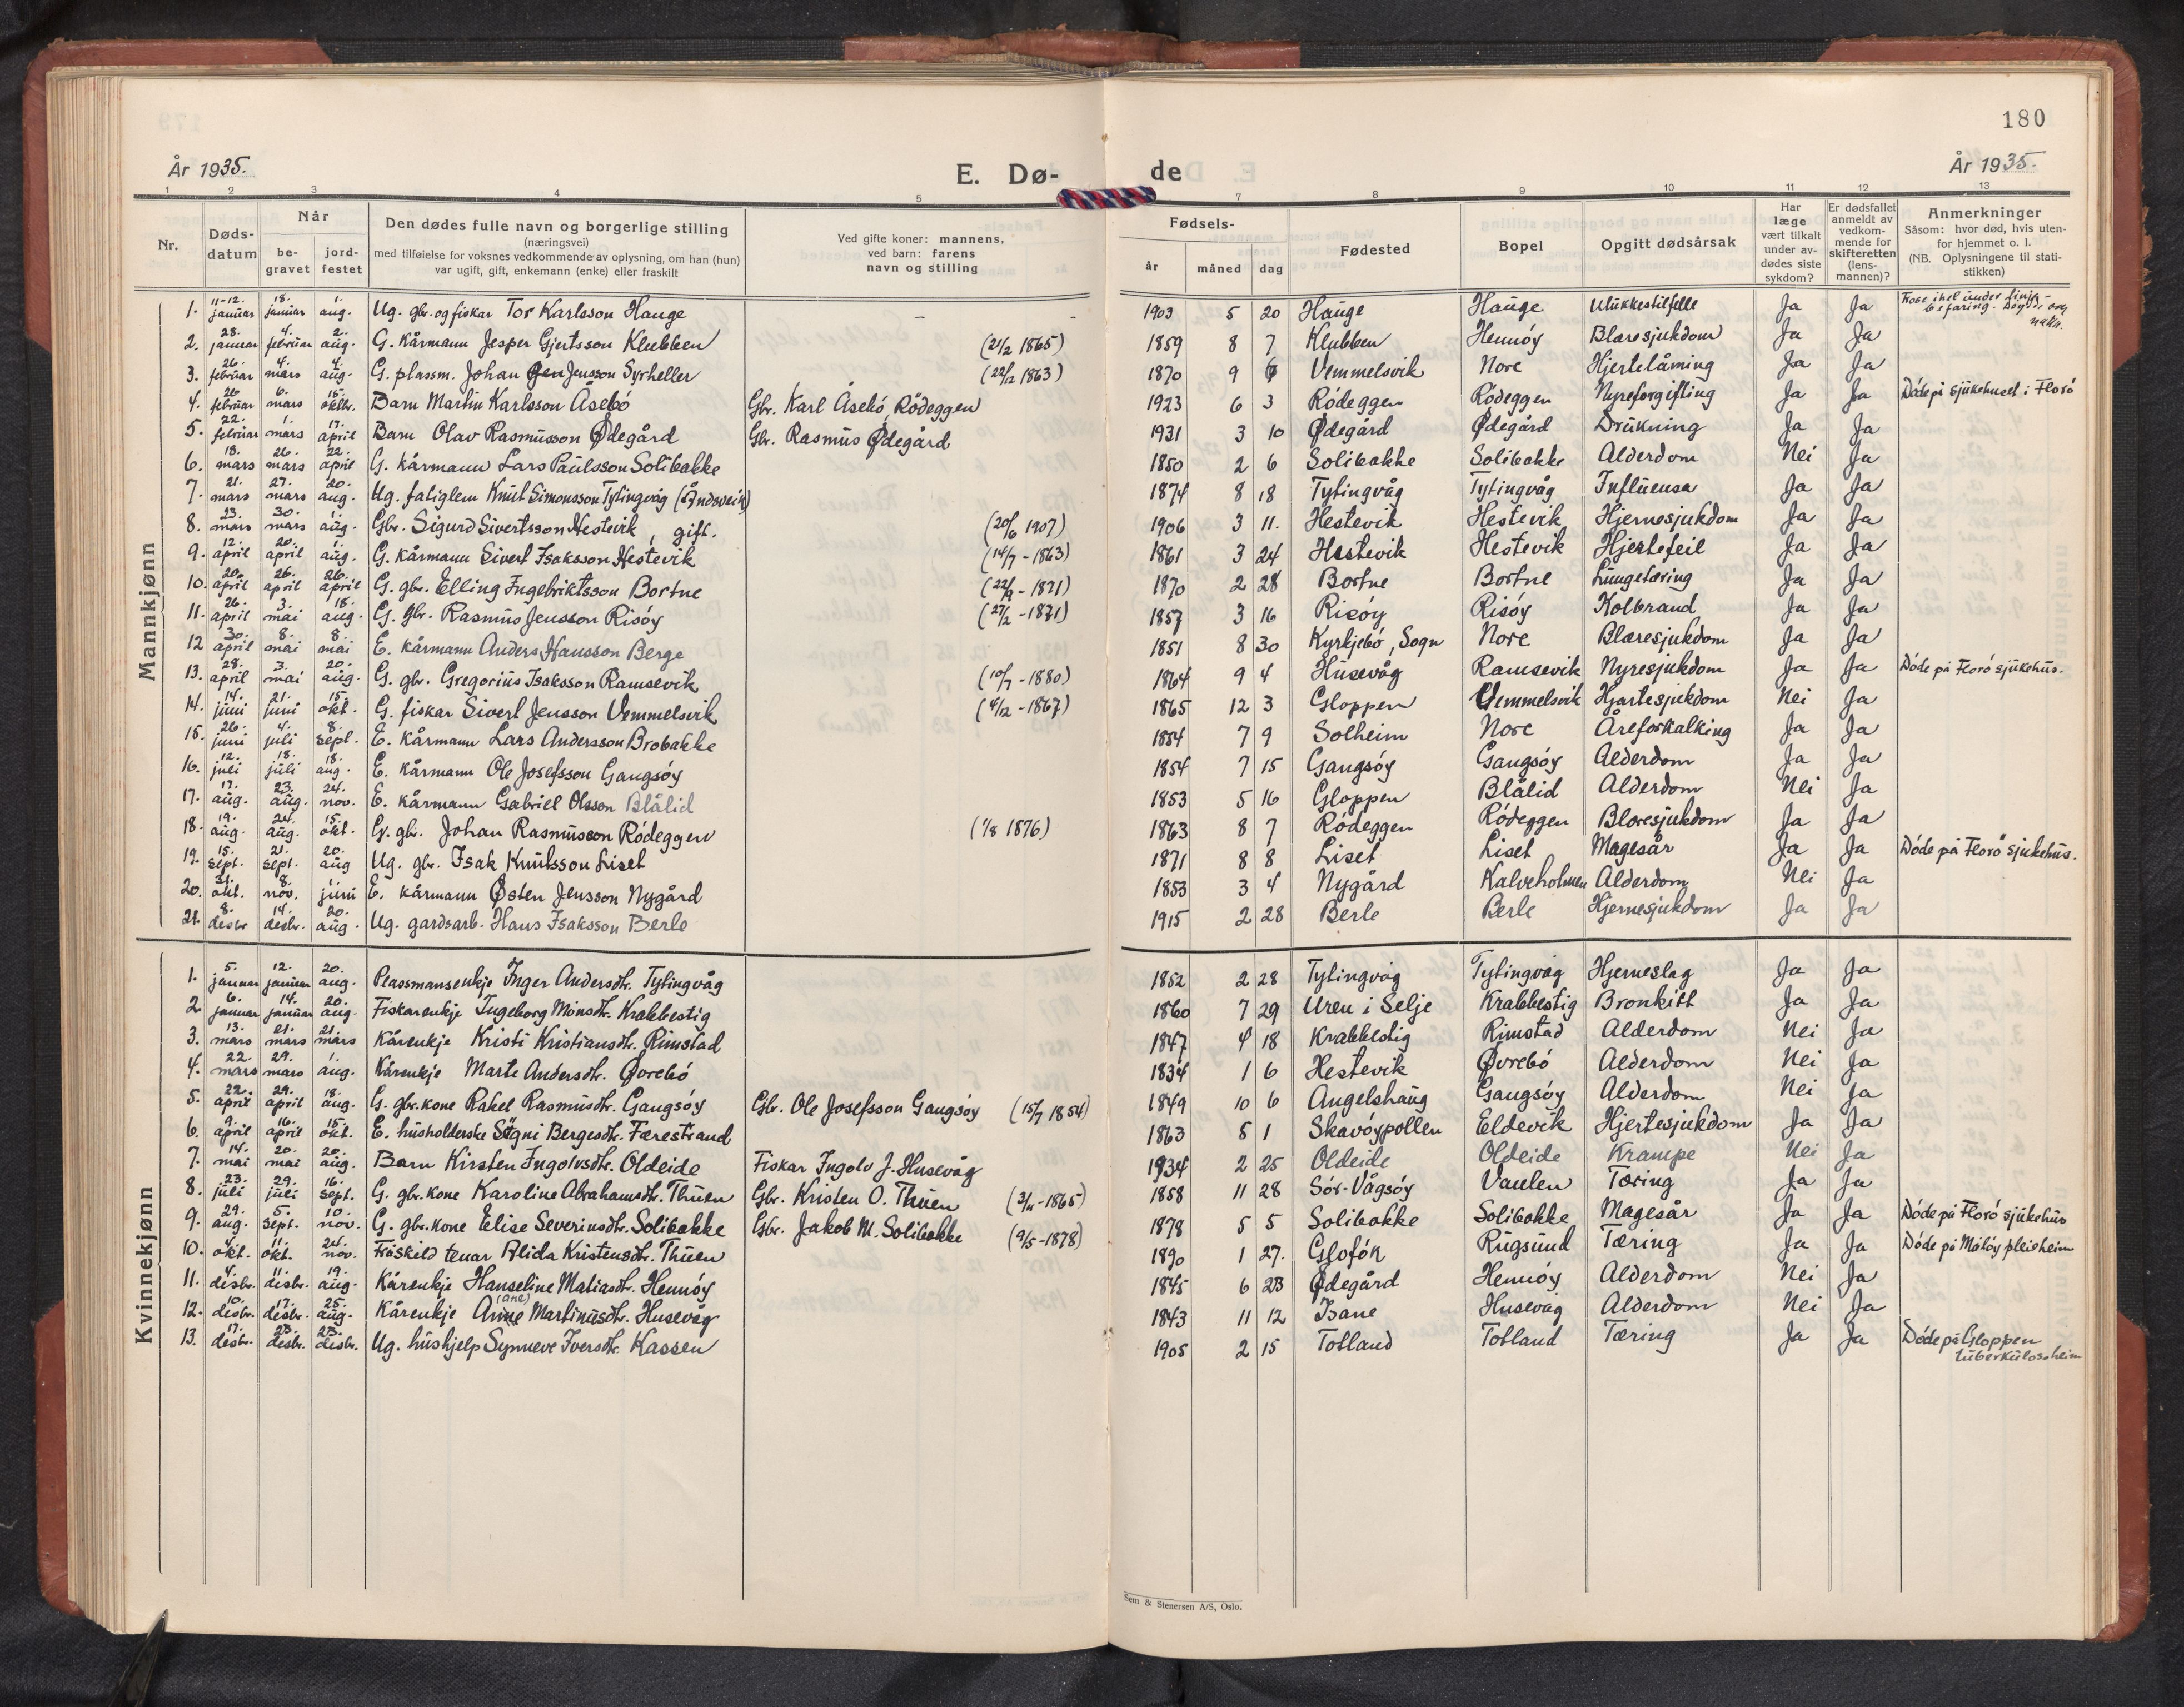 180
År 1935.
E. Dø-
de
År 1935.
1 2 3 4 5 7 8 9 10 11 12 13
Nr.
Døds-
datum
Når
be-
gravet
jord-
festet
Den dødes fulle navn og borgerlige stilling
(næringsvei)
med tilføielse for voksnes vedkommende av oplysning, om han (hun)
var ugift, gift, enkemann (enke) eller fraskilt
Ved gifte koner: mannens,
ved barn: farens
navn og stilling
Fødsels-
år måned dag
Fødested
Bopel
Opgitt dødsårsak
Har
læge
vært tilkalt
under av-
dødes siste
sykdom?
Er dødsfallet
anmeldt av
vedkom-
mende for
skifteretten
(lens-
mannen)?
Anmerkninger
Såsom: hvor død, hvis uten-
for hjemmet o. l.
(NB. Oplysningene til stati-
stikken)
Mannkjønn
1. 11-12. januar 18. januar 1. aug. Ug. gbr. og fiskar Tor Karlsson Hauge – – 1903 5 20 Hauge Hauge Ulukkestilfelle Ja Ja Frøs ihel under
2. 28. januar 4. februar 2. aug. G. kårmann Jesper Gjertsson Klubben (21/2 1865) 1859 8 7 Klubben Hennøy Blæresjukdom Ja Ja
3. 26. februar 4. mars 4. aug. G. plassm. Johan Jensson Syrheller (22/12 1863) 1870 9 6 Vemmelsvik Nore Hjertelåming Ja Ja
4. 26. februar 6. mars 15. oktbr. Barn Martin Karlsson Åsebó Gbr. Karl Åsebó, Ródeggen 1923 6 3 Ródeggen Ródeggen Nyreforgifting Ja Ja Døde på sjukehuset i Floró
5. 22. februar 1. mars 17. april Barn Olav Rasmusson Ødegård Gbr. Rasmus Ødegård 1931 3 10 Ødegård Ødegård Drukning Ja Ja
6. 18. mars 26. mars 22. april G. kårmann Lars Paulsson Solibakke 1850 2 6 Solibakke Solibakke Alderdom Nei Ja
7. 21. mars 27. mars 20. aug. Ug. fatiglem Knut Simonsson Tytingvåg (Åndsveik) 1874 8 18 Tytingvåg Tytingvåg Influensa Ja Ja
8. 23. mars 30. mars 1. aug. Gbr. Sigurd Sivertsson Hestevik, gift. (20/6 1907) 1906 3 11. Hestevik Hestevik Hjernesjukdom Ja Ja
9. 12. april 20. april 1. aug. G. kårmann Sivert Isaksson Hestevik (14/7 - 1863) 1861 3 24 Hestevik Hestevik Hjertefeil Ja Ja
10. 20. april 26. april 26. april G. gbr. Elling Ingebriktsson Bortne (22/9 - 1871) 1870 2 28 Bortne Bortne Lungetæring Ja Ja
11. 26. april 3. mai 18. aug. G. gbr. Rasmus Jensson Risóy (27/2 - 1871) 1857 3 16 Risóy Risóy Kolbrand Ja Ja
12 30. april 8. mai 8. mai E. kårmann Anders Hansson Berge 1851 8 30 Kyrkjebó, Sogn Nore Blæresjukdom Ja Ja
13. 28. april 3. mai 20. aug. G. gbr. Gregorius Isaksson Ramsevik (10/7 - 1880) 1864 9 4 Husevåg Ramsevik Nyresjukdom Ja Ja Døde på Floró sjukehus.
14. 14. juni 21. juni 15. okt. G. fiskar Sivert Jensson Vemmelsvik (4/12 - 1867) 1865 12 3 Gloppen Vemmelsvik Hjartesjukdom Nei Ja
15. 26. juni 4. juli 8. sept. E. kårmann Lars Andersson Brobakke 1854 7 9 Solheim Nore Åreforkalking Ja Ja
16. 12. juli 18. juli 18. aug. E. kårmann Ole Josefsson Gangsóy 1854 7 15 Gangsóy Gangsóy Alderdom Ja Ja
17. 17. aug. 23. aug. 24. nov. E. kårmann Gabriel Olsson Blålid 1853 5 16 Gloppen Blålid Alderdom Nei Ja
18. 19. aug. 24. aug. 15. okt. G. gbr. Johan Rasmusson Ródeggen (1/8 1876) 1863 8 7 Ródeggen Ródeggen Blæresjukdom Ja Ja
19. 15. sept. 21. sept. 20. aug Ug. gbr. Isak Knutsson Liset 1871 8 8 Liset Liset Magesår Ja Ja Døde på Floró sjukehus.
20. 31. okt. 8. nov. 1. juni E. kårmann Østen Jensson Nygård 1853 3 4 Nygård Kalveholmen Alderdom Nei Ja
21. 8. desbr 14. desbr. 20. aug. Ug. gardsarb. Hans Isaksson Berle 1915 2 28 Berle Berle Hjernesjukdom Ja Ja
Kvinnekjønn
1. 5. januar 12. januar 20. aug. Plassmansenkje Inger Andersdtr. Tytingvåg 1852 2 28 Tytingvåg Tytingvåg Hjerneslag Ja Ja
2 6. januar 14. januar 20. aug. Fiskarenkje Ingeborg Mónsdtr. Krabbestig 1860 7 29 Uren i Selje Krabbestig Bronkitt Ja Ja
3. 13. mars 21. mars 21. mars Kårenkje Kristi Kristiansdtr. Rimstad 1847 4 18 Krabbestig Rimstad Alderdom Nei Ja
4. 22. mars 29. mars 1. aug. Kårenkje Marte Andersdtr. Øvrebó 1834 1 6 Hestevik Øvrebó Alderdom Nei Ja
5. 22. april 29. april 18. aug. G. gbr.kone Rakel Rasmusdtr. Gangsóy Gbr. Ole Josefsson Gangsóy (15/7 1854) 1849 10 6 Angelshaug Gangsóy Alderdom Nei Ja
6. 9. april 16. april 15. okt. E. husholderske Sógni Bergesdtr. Færestrand 1863 5 1 Skavóypollen Eldevik Hjertesjukdom Ja Ja
7. 14. mai 20. mai 20. aug. Barn Kirsten Ingolvsdtr. Oldeide Fiskar Ingolv J. Husevåg 1934 2 25 Oldeide Oldeide Krampe Nei Ja
8. 23. juli 29. juli 16. sept. G. gbr.kone Karoline Abrahamsdtr. Thuen Gbr. Kristen O. Thuen (3/11 - 1865) 1858 11 28 Sór-Vågsóy Vaulen Tæring Ja Ja
9. 29. aug. 5. sept. 10. nov. G. gbr.kone Elise Severinsdtr. Solibakke Gbr. Jakob M. Solibakke (9/5 - 1878) 1878 5 5 Solibakke Solibakke Magesår Ja Ja Døde på Floró sjukehus
10. 4. okt. 11. okt. 24. nov. Fråskild tenar Alida Kristensdtr. Thuen 1890 1 27. Glofók Rugsund Tæring Ja Ja Døde på Målóy pleieheim
11. 4. desbr. 11. desbr. 19. aug. Kårenkje Hanseline Matiasdtr. Hennóy 1845 6 23 Ødegård Hennóy Alderdom Nei Ja
12. 10. desbr. 17. desbr. 25. aug. Kårenkje Anne (Ane) Martinusdtr. Husevåg 1843 11 12 Isane Husevåg Alderdom Nei Ja
13. 17. desbr. 23. desbr. 23. desbr. Ug. hushjelp Synneve Iversdtr. Kassen 1905 2 15 Totland Totland Tæring Ja Ja Døde på Gloppen
tuberkulosheim
Sem & Stenersen A/S, Oslo.